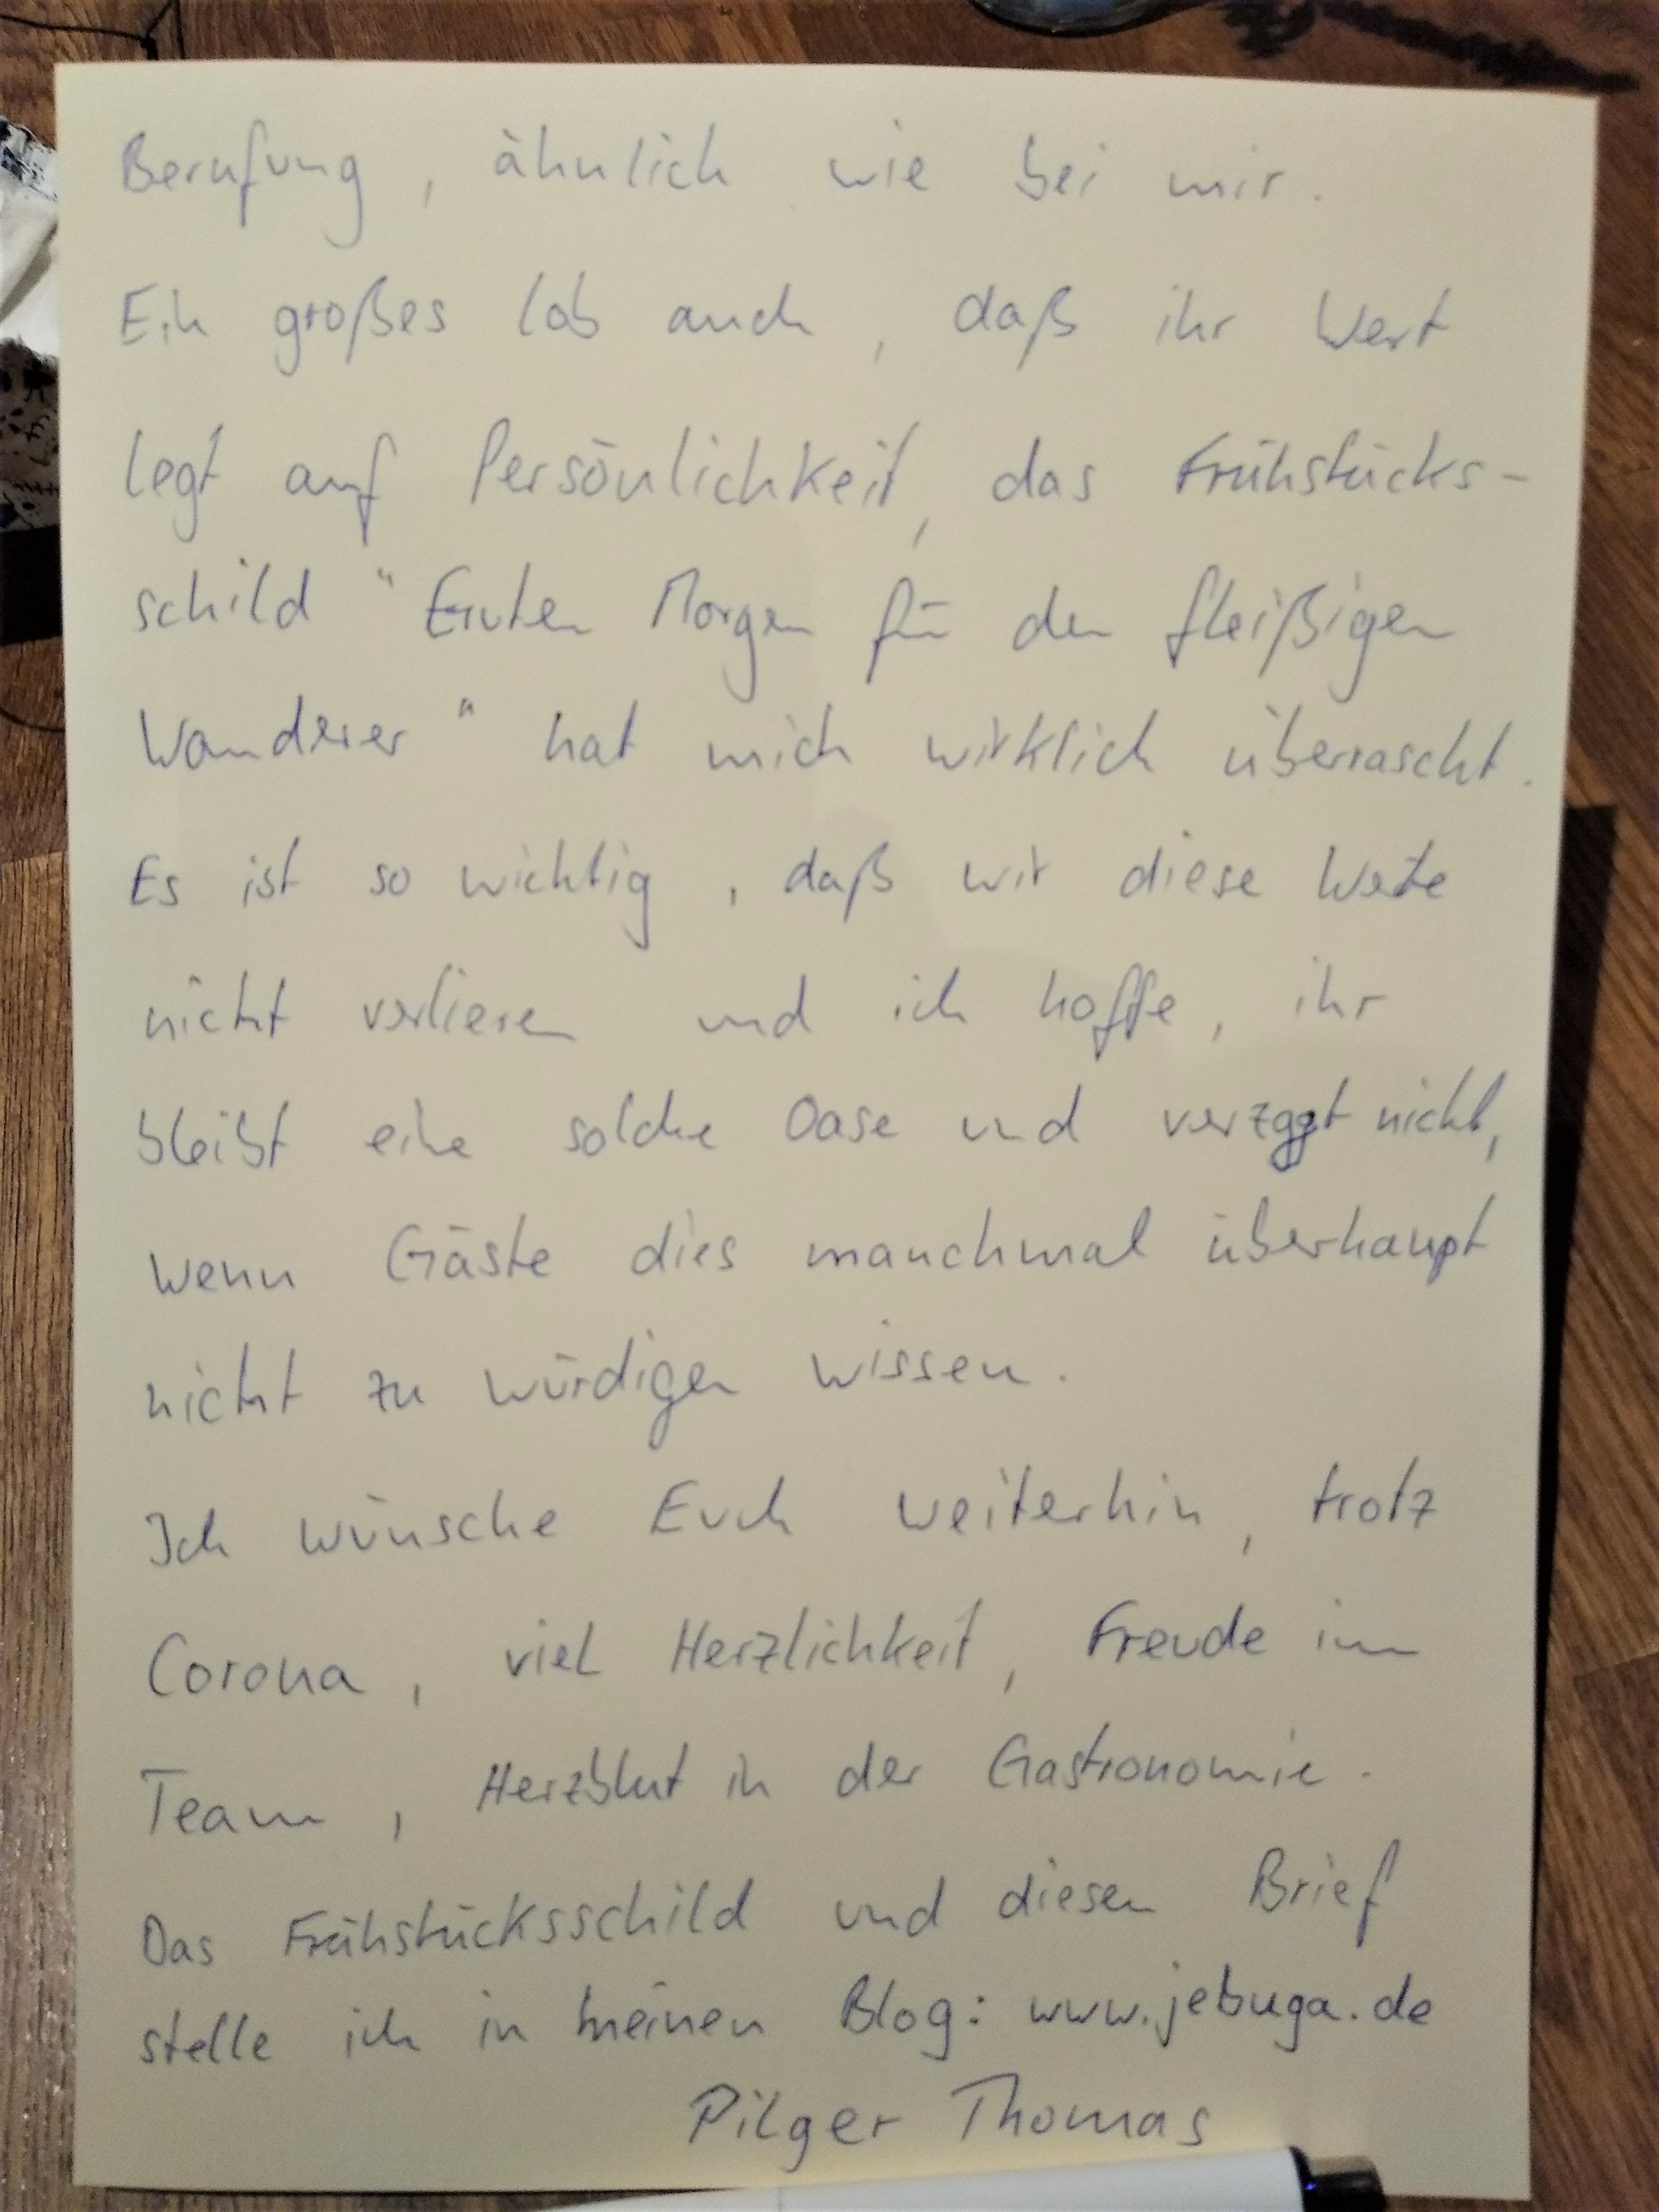 Berufung, ähnlich wie bei mir.
Ein großes Lob auch, daß ihr Wert
legt auf Persönlichkeit, das Frühstücks-
schild "Guten Morgen für den fleißigen
Wanderer" hat mich wirklich überrascht.
Es ist so wichtig, daß wir diese Werte
nicht verlieren und ich hoffe, ihr
bleibt eine solche Oase und verzagt nicht,
wenn Gäste dies manchmal überhaupt
nicht zu würdigen wissen.
Ich wünsche Euch weiterhin, trotz
Corona, viel Herzlichkeit, Freude im
Team, Herzblut in der Gastronomie.
Das Frühstücksschild und diesen Brief
stelle ich in meinen Blog: www.jebuga.de
Pilger Thomas